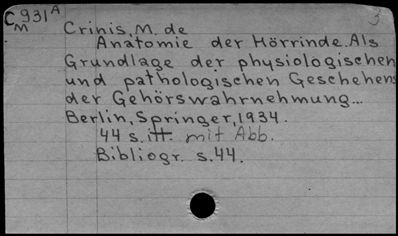 C931A 3
M Crinis, M. de
Anatomie der Hörrinde. Als
Grundlage der physiologischen
und pathologischen Geschehens
der Gehörswahrnehmung...
Berlin, Springer, 1934.
44 s. itt. mit Abb.
Bibliogr. s. 44.